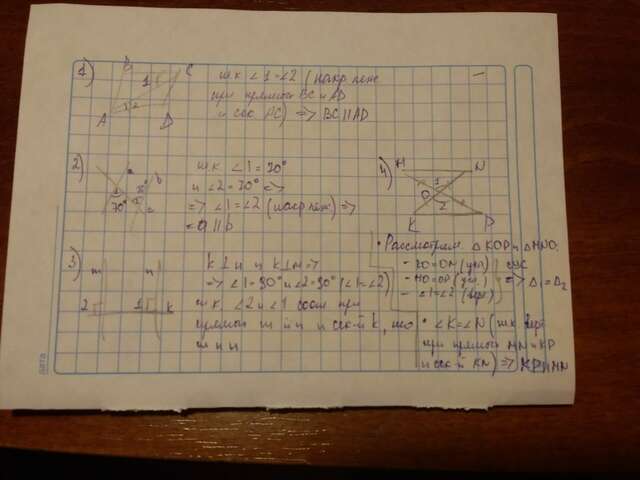 1)
B
C
1
A
2
D
т к ∠1=∠2 (накр леж
при прямых BC и AD
и сек AC) => BC || AD
2)
a
b
70°
т к ∠1=70°
и ∠2=70° =>
=> ∠1=∠2 (накр леж) =>
=> a || b
3)
m
n
2
1
k
k⊥n и k⊥m =>
=> ∠1=90° и ∠2=90° (∠1=∠2)
т к ∠2 и ∠1 соот при
прямой m и n и сек-й k, то
m || n
4)
M
N
O
1
2
K
P
• Рассмотрим △KOP и △MNO:
- KO=ON (усл)
- MO=OP (усл.) => △1=△2
- ∠1=∠2 (верт)
СУС
• ∠K=∠N (т к
при прямой MN и KP
и сек-й KN) => KP || MN